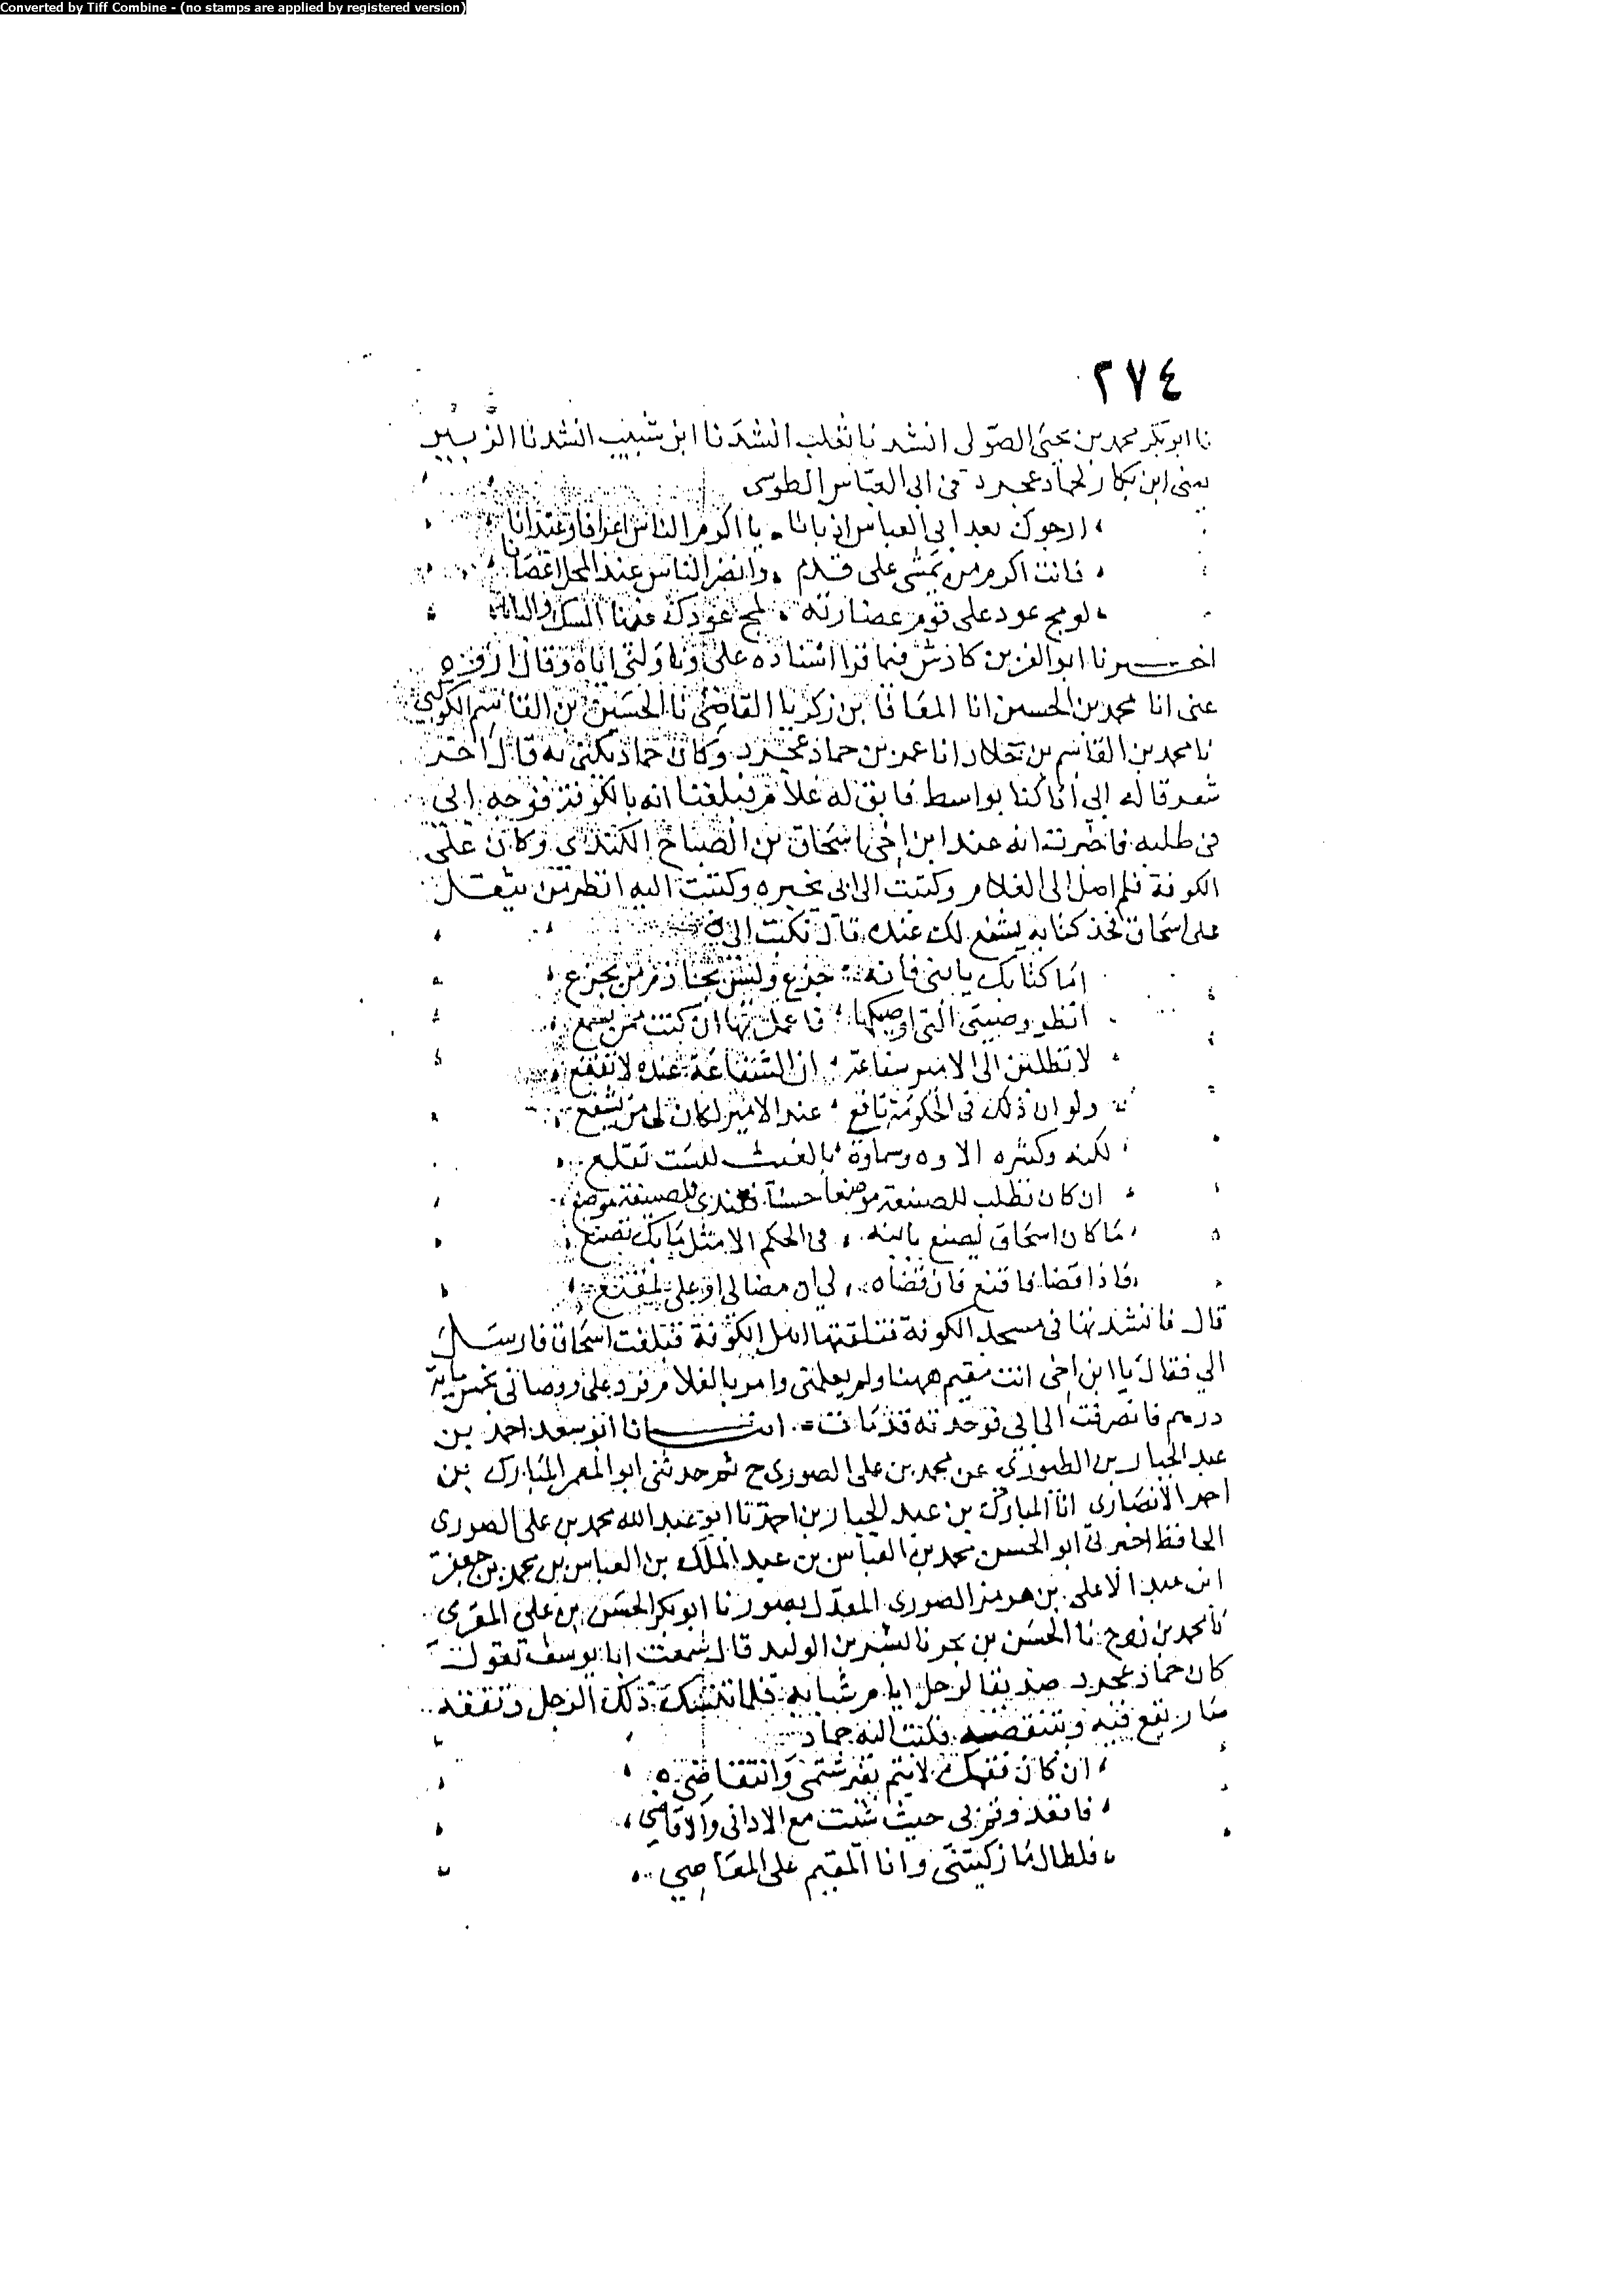 Converted by Tiff Combine - (no stamps are applied by registered version)
٢٧٤
نا ابو بكر محمد بن يحيى الصولى انشدنا ثعلب انشدنا ابن شبيب انشدنا الزبير
يعنى ابن بكار لحماد عجرد فى ابى العباس الطوسى
ارجوك بعد ابى العباس اذ بانا يا اكرم الناس اعراقا وعيدانا
فانت اكرم من يمشى على قدم وانضر الناس عند المحل اغصانا
لو مج عود على قوم عضارته لمج عودك فينا المسك والبانا
اخبرنا ابو العز بن كادش فيما قرا اسناده على وناولنى اياه وقال اروه
عنى انا محمد بن الحسين انا المعافا بن زكريا القاضى نا الحسين بن القاسم الكوكبى
نا محمد بن القاسم بن خلاد انا عمر بن حماد عجرد وكان حماد يكنى به قال اخر
شعر قاله ابى انا كنا بواسط فابق له غلام فبلغنا انه بالكوفة فوجه ابى
فى طلبه فاخبرت انه عند ابن اخى اسحاق بن الصباح الكندى وكان على
الكوفة فلم اصل الى الغلام وكتبت الى ابى بخبره وكتبت اليه انظر من يثقل
على اسحاق فخذ كتابه يشفع لك عنده قال فكتب الى
اما كتابك يا بنى فانه جزع وليس بحازم من يجزع
انظر وصيتى التى اوصيكها فاعمل بها ان كنت ممن يسمع
لا تطلبن الى الامير شفاعة ان الشفاعة عنده لا تنفع
ولو ان ذلك فى الحكومة نافع عند الامير لكان لى من يشفع
لكنه وكثره الاوه وسماوة بالغيث ليست تقلع
ان كان تطلب للصنيعة موضعا حسنا فعندى للصنيعة موضع
ما كان اسحاق ليصنع بابنه فى الحكم الا مثل ما بك يصنع
فاذا قضا فاقنع فان قضاه لى ان مضا لى او على لمقنع
قال فانشدتها فى مسجد الكوفة فتلقتها اهل الكوفة فبلغت اسحاق فارسل
الي فقال يا ابن اخى انت مقيم ههنا ولم يعلمنى وامر بالغلام فرد على ووصانى بخمس ماية
درهم فانصرفت الى ابى فوجدته قد مات انبانا ابو سعد احمد بن
عبد الجبار بن الطيورى عن محمد بن على الصورى ح ثم حدثنى ابو المعمر المبارك بن
احمد الانصارى انا المبارك بن عبد الجبار بن احمد نا ابو عبد الله محمد بن على الصورى
الحافظ اخبرنى ابو الحسن محمد بن العباس بن عبد الملك بن العباس بن محمد بن جعفر
ابن عبد الاعلى بن هرمز الصورى المعدل بصور نا ابو بكر الحسن بن على المقرى
نا محمد بن نوح نا الحسن بن بحر نا بشر بن الوليد قال سمعت ابا يوسف يقول
كان حماد عجرد صديقا لرجل ايام شبابه فلما تنسك ذلك الرجل وتفقه
صار يقع فيه وينتقصه فكتب اليه حماد
ان كان فقهك لا يتم بغير شتمى وانتقاصى
فاقعد وقم بى حيث شئت مع الادانى والاقاصى
فلطال ما زكيتنى وانا المقيم على المعاصي